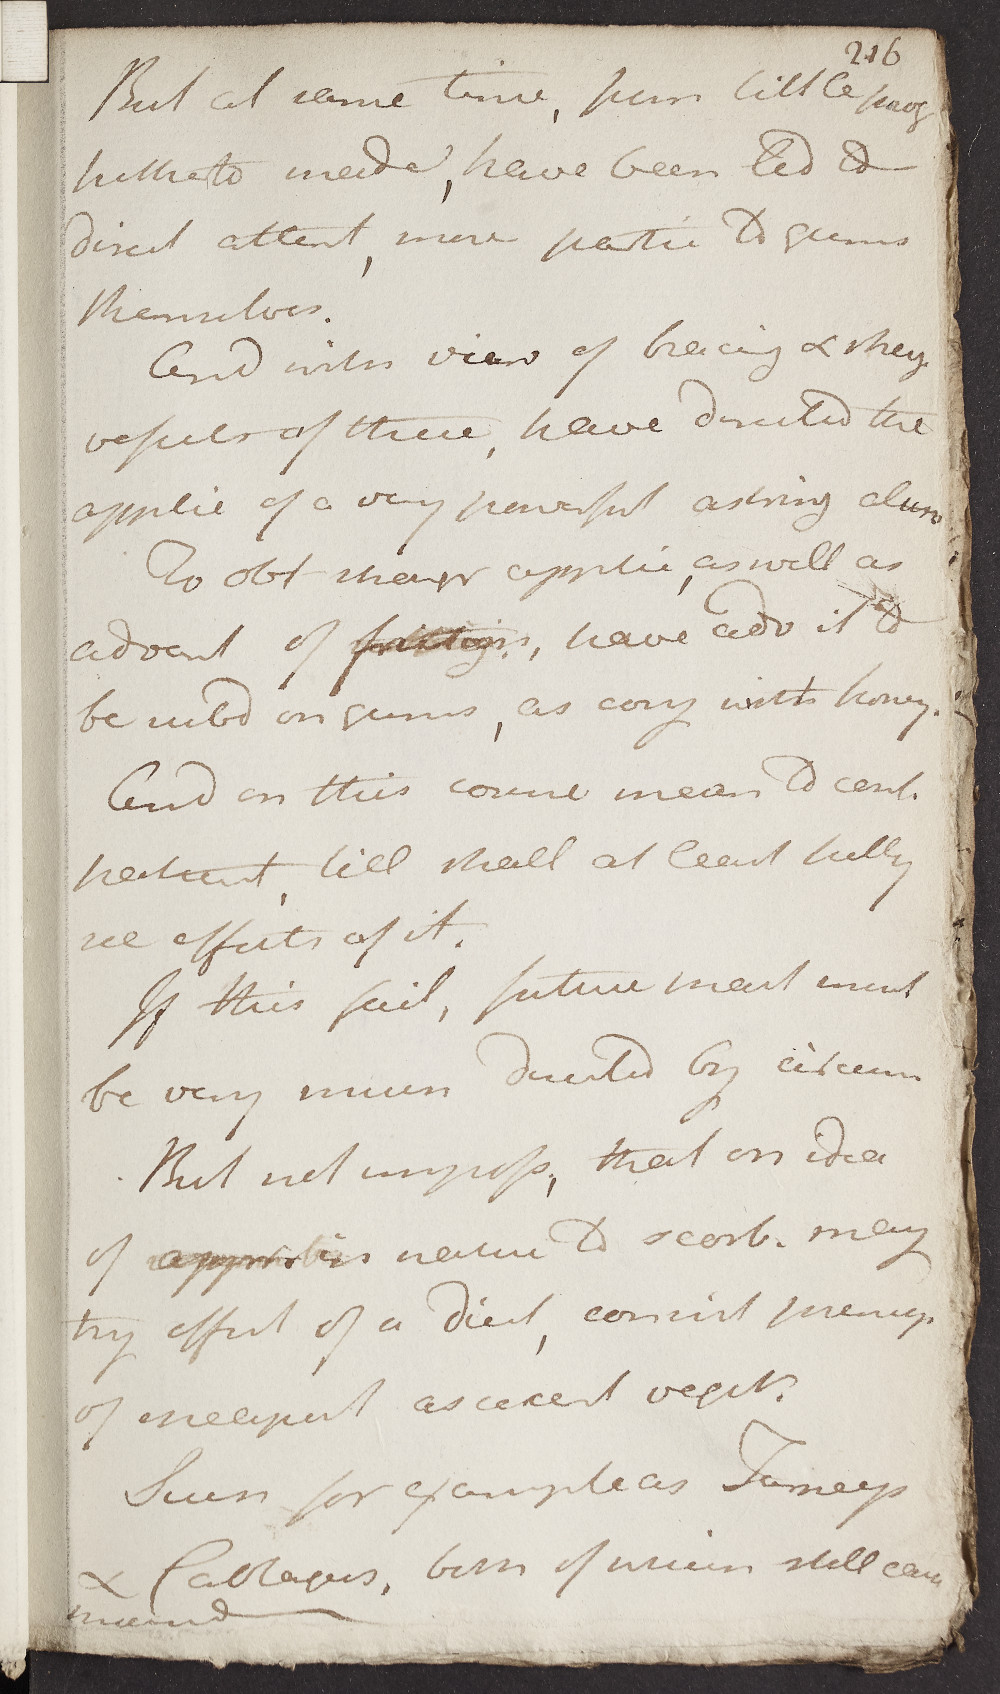 216
But at same time, from little prog
hitherto made, have been led to
direct attent, more partic to gums
themselves.
And with view of bracing & streng
vessels of these, have directed the
applic of a very powerful astring alum
To obt applic, as well as
advant of friction, have adv it to
be rubd on gums, as cong with honey.
And on this course mean to cont.
patient, till shall at least fully
see effects of it.
If this fail, future treat must
be very much directed by circum
But not imposs, that on idea
of approx in nature to scorb. may
try effect of a diet, consist princip
of ascescent veget.
Such for example as Turneps
& Cabbages, both of which still can